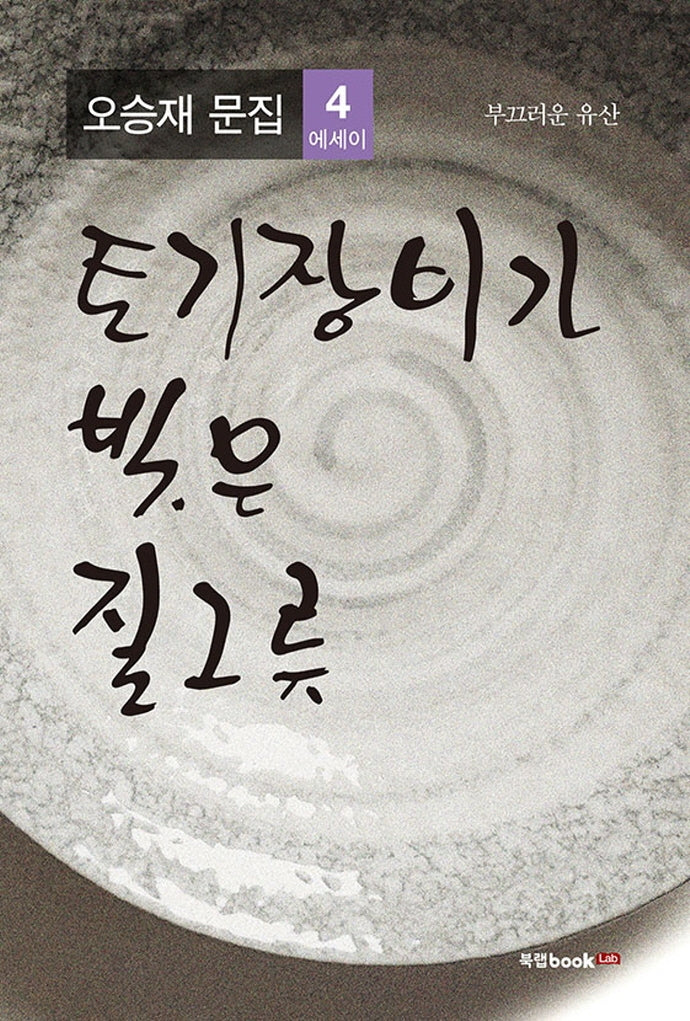 오승재 문집
4
에세이
부끄러운 유산
토기장이가
빚은
질그릇
북랩book Lab